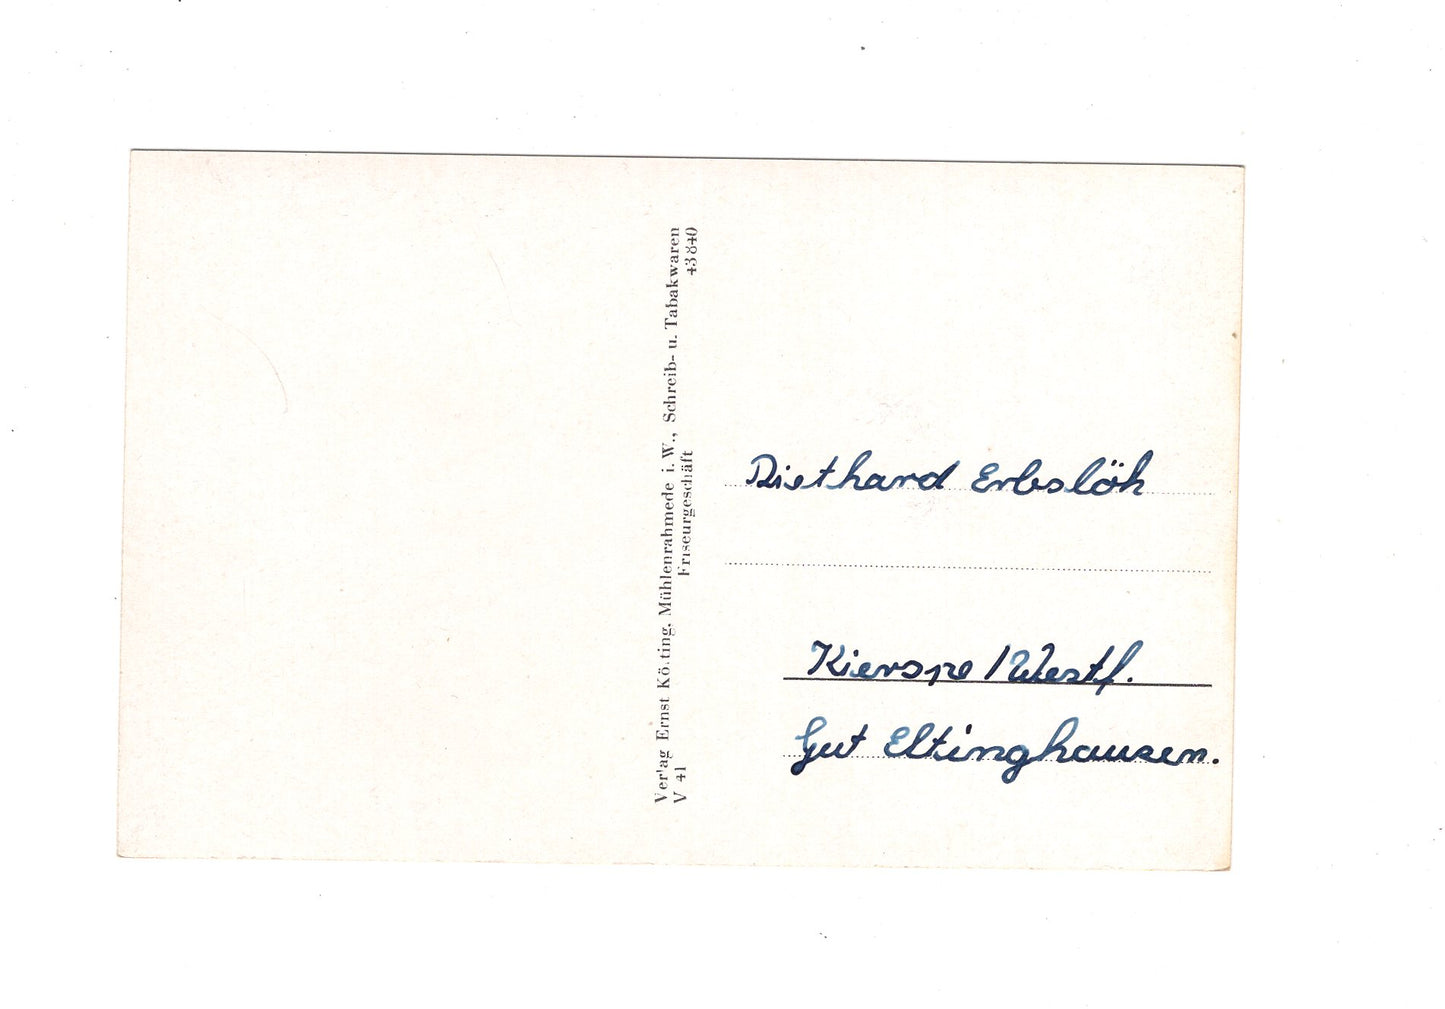 Verlag Ernst Költing, Mühlenrahmede i. W., Schreib- u. Tabakwaren
Friseurgeschäft
V 41
43 840
Diethard Erbslöh
Kierspe / Westf.
Gut Eltinghausen.